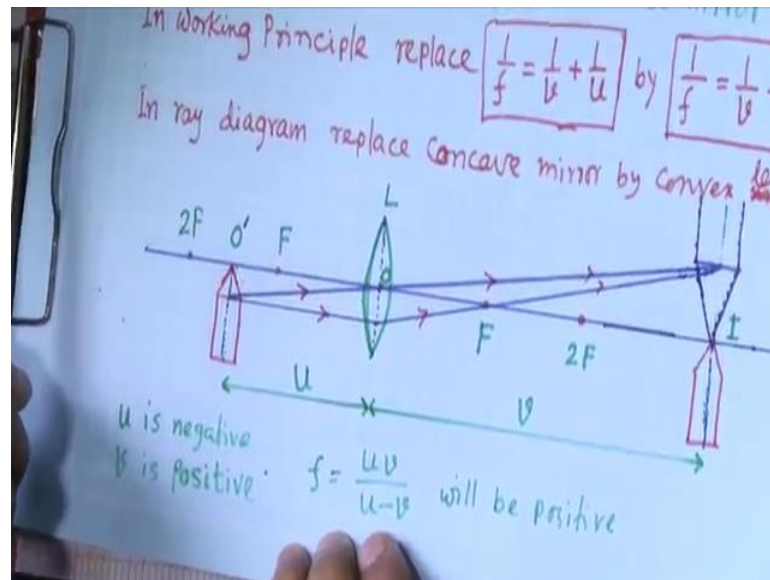 In Working Principle replace 1/f = 1/v + 1/u by 1/f = 1/v
In ray diagram replace Concave mirror by Convex
L
2F O' F
F 2F I
u v
u is negative
v is Positive. f = uv/u-v will be positive